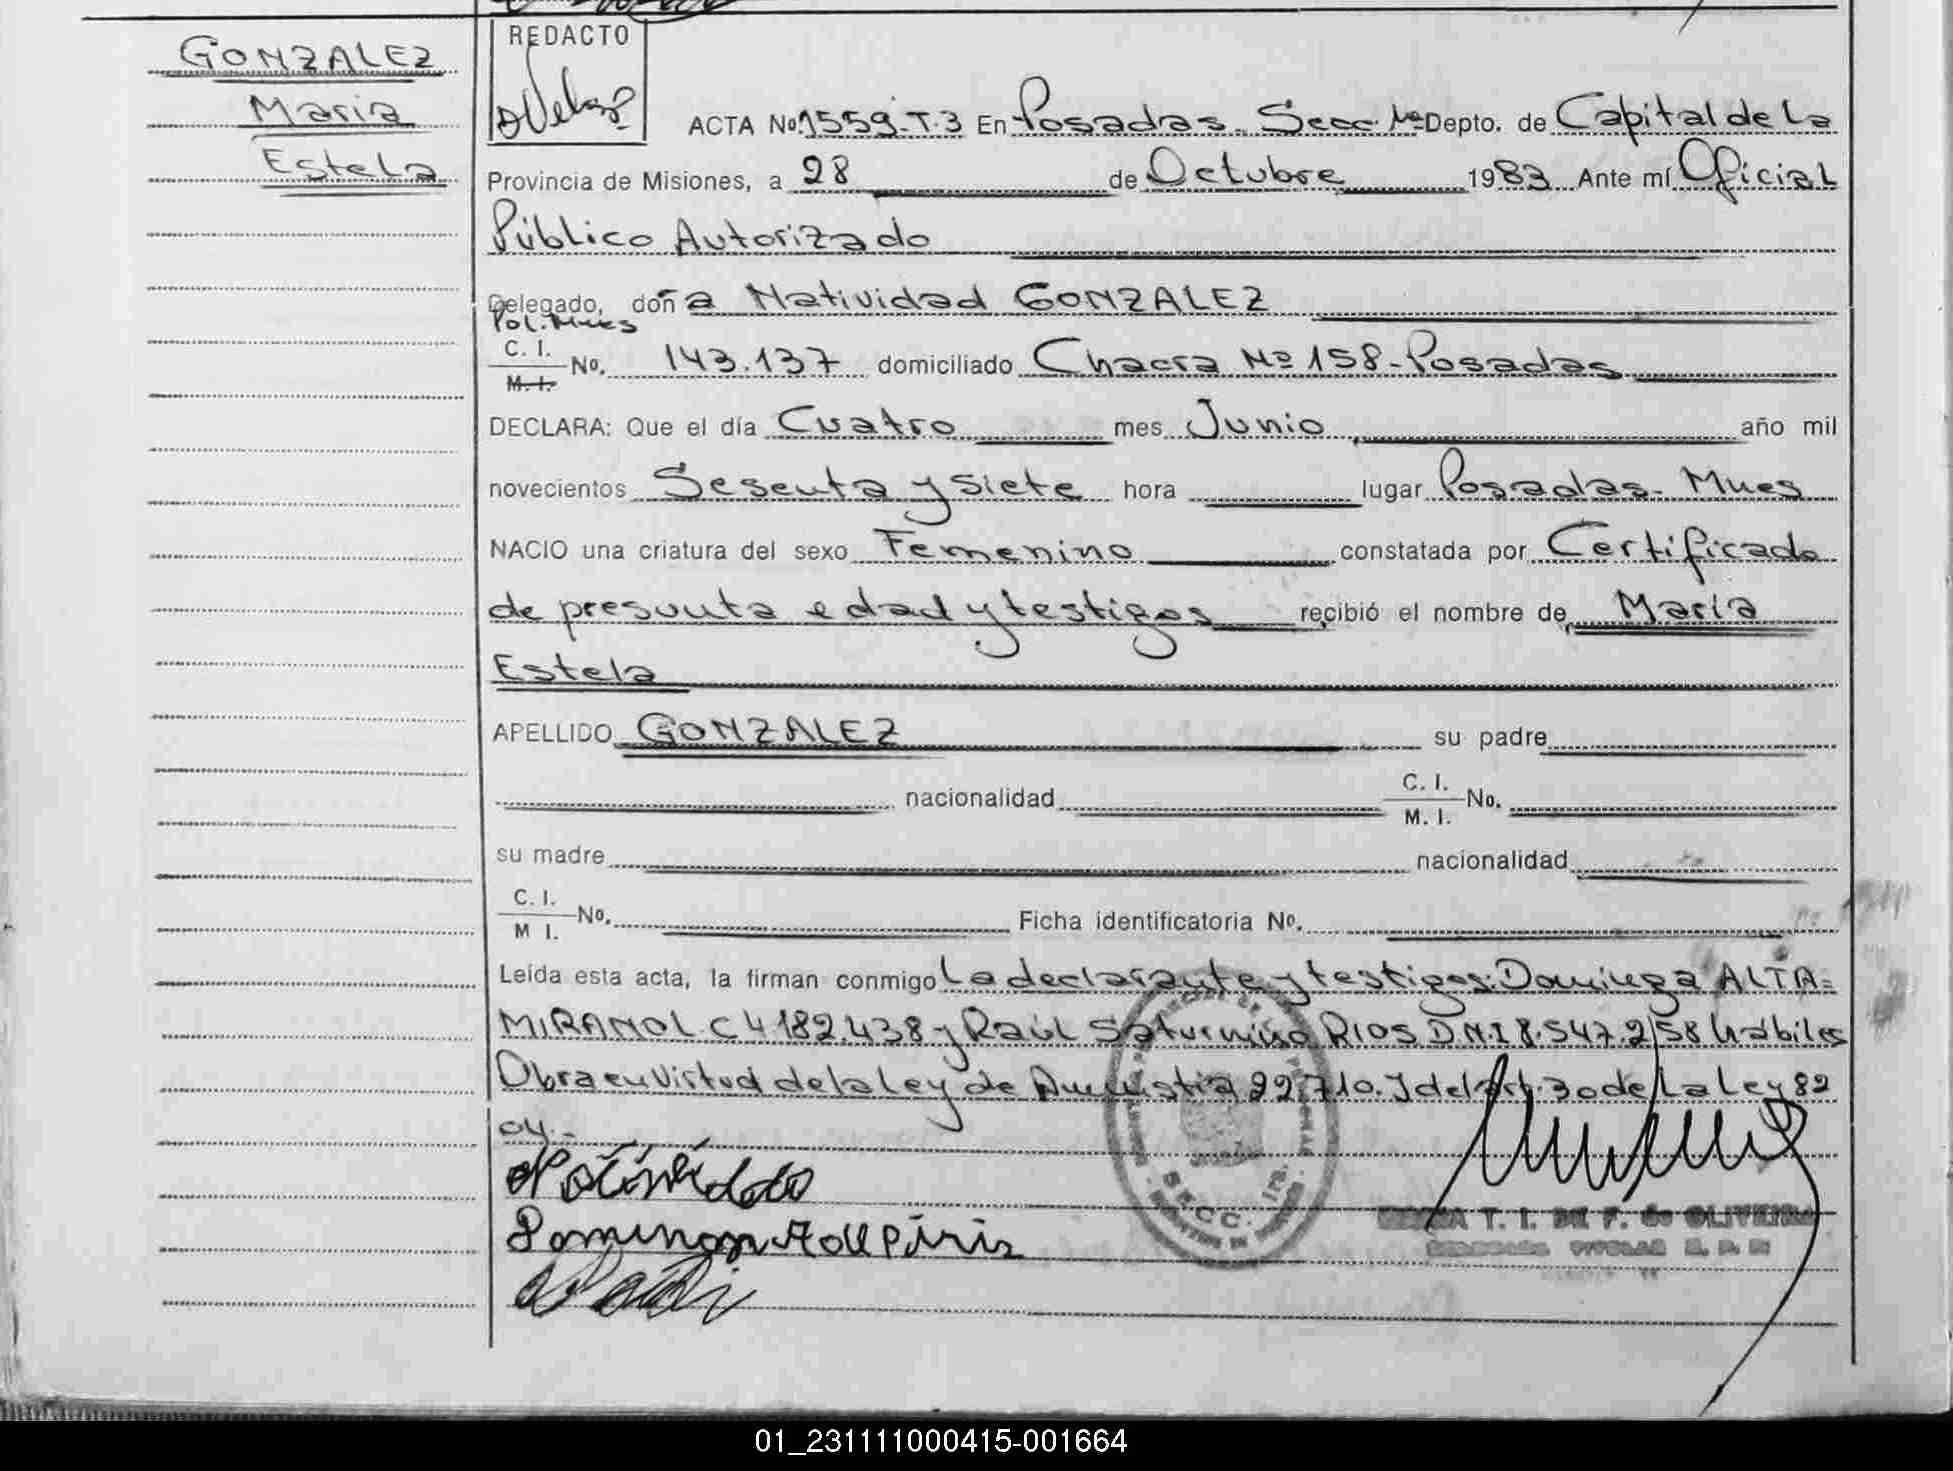 GONZALEZ
Maria
Estela
REDACTO
ACTA Nº 1559-T.3 En Posadas. Secc. 1ª Depto. de Capital de La
Provincia de Misiones, a 28 de Octubre 1983 Ante mí Oficial
Público Autorizado
Delegado, doña Natividad GONZALEZ
Pol. Mnes
C. I.
M. I. No. 143.137 domiciliado Chacra Nº 158-Posadas
DECLARA: Que el día Cuatro mes Junio año mil
novecientos Sesenta y siete hora lugar Posadas-Mnes
NACIO una criatura del sexo Femenino constatada por Certificado
de presunta edad y testigos recibió el nombre de María
Estela
APELLIDO GONZALEZ su padre
nacionalidad C. I.
M. I. No.
su madre nacionalidad
C. I.
M I. No. Ficha identificatoria Nº.
Leída esta acta, la firman conmigo La declarante y testigos: Dominga ALTA=
MIRANO L.C 4182.438 y Raúl Saturnino RIOS D.N.I 8.547.258 hábiles
Obra en virtud de la Ley de Amnistia 22.710. Y del Art. 30 de La Ley 82
04.-
T. I. DE F. de OLIVEIRA
01_231111000415-001664